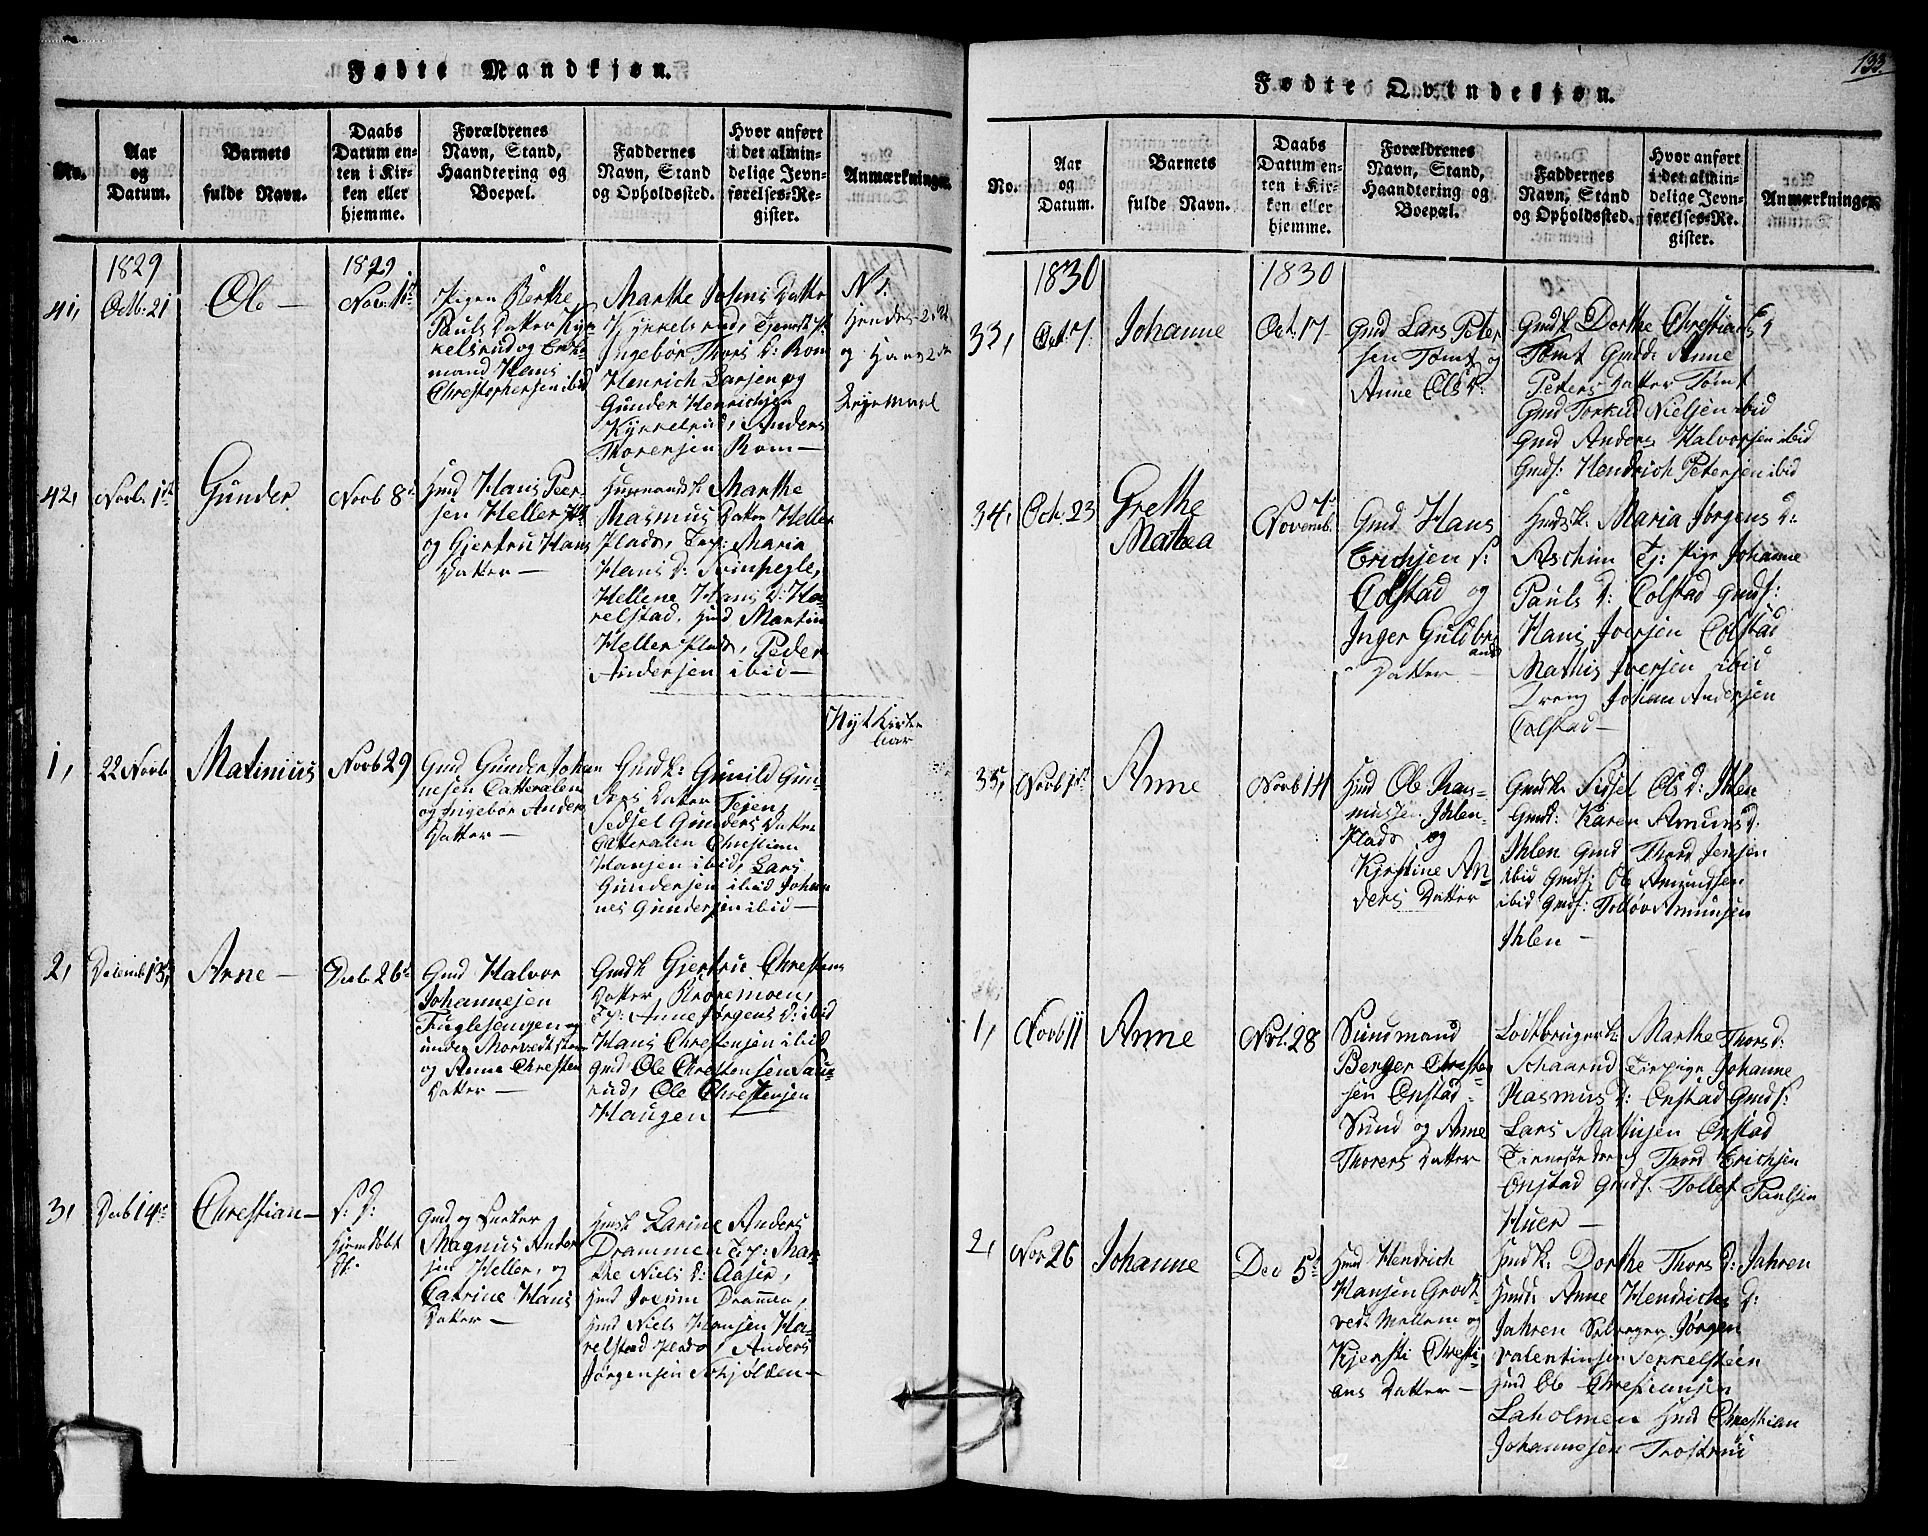 Fødte Mandkjøn.
No.
Aar
og
Datum.
Barnets
fulde Navn.
Daabs
Datum en-
ten i Kir-
ken eller
hjemme.
Forældrenes
Navn, Stand,
Haandtering og
Boepæl.
Faddernes
Navn, Stand
og Opholdssted.
Hvor anført
i det almin-
delige Jevn-
førelses-Re-
gister.
Anmærkninger.
1829
1829
41,
Octb: 21
Ole —
Novb: 1st
Pigen Berthe
Pauls Datter Kyk-
kelsrud og
mand Hans
Christophersen ibid
Marthe Johns Datter
Kykkelsrud, Tjenestp:
Ingebor Thors D: Rom
Henrich Larsen og
Gunder Henrichsen
Kykkelsrud, Anders
Thoresen Rom —
N.
Hendes 2det
og Hans 2det
Leiermaal
42,
Novb. 1st
Gunder
Novb 8de
Hmd Hans Peer-
sen Heller Pl
og Gjertru Hans
Datter —
Huusmandsk. Marthe
Rasmus Datter Heller
Plads, Tep: Maria
Hans D: Svinpegle,
Hellene Hans D: Ha-
relstad. Hmd Martin
Heller Plads, Peder
Andersen ibid —
Nyt Kirke
Aar
1,
22 Novb
Matinius
Novb 29
Gmd Gunder Johan
nesen Catteralen
og Ingebor Anders
Datter —
Gmdk: Gunild Gun-
ders Datter Tejen,
Sedsel Gunders Datter
Catteralen Christian
Hansen ibid, Lars
Gundersen ibid Johan
nes Gundersen ibid —
2,
Decemb 13,
Arne —
Decb 26de
Gmd Halvor
Johannesen
Fuglesengen og
under Morvedt
og Anne Christens
Datter —
Gmdk Gjertru Christens
Datter, Kroremoen,
Tp: Anne Jørgens D: ibid
Hans Christensen ibid
Gmd Ole Christensen Sau-
rud, Ole Christensen
Haugen
3,
Decb 14de
Christian —
S: D:
Hjemdøbt
Gmd og
Magnus Ander
sen Heller, og
Catrine Hans
Datter —
Hmsk Larine Anders
Drammen Tp: Mar-
the Niels D: Aaser,
Hmd Jocum Drammen,
Hmd Niels Hansen Ha-
relstad Plads, Anders
Jørgensen Schjølden —
133.
Fødte Qvindekjøn.
No.
Aar
og
Datum.
Barnets
fulde Navn.
Daabs
Datum en-
ten i Kir-
ken eller
hjemme.
Forældrenes
Navn, Stand,
Haandtering og
Boepæl.
Faddernes
Navn, Stand
og Opholdssted.
Hvor anført
i det almin-
delige Jevn-
førelses-Re-
gister.
Anmærkninger.
1830
1830
33,
Oct. 7.
Johanne
Oct. 17
Gmd Lars Peter
sen Tomt og
Anne Ols D:
Gmdk Dorthe Christians D
Tomt Gmdd: Anne
Peters Datter Tomt
Gmd Torkild Nielsen ibid
Gmd Anders Halvorsen ibid
Gmds: Hendrich Petersen ibid
34,
Octb. 23
Grethe
Mathea
Novemb. 7
Gmd Hans
Erichsen s:
Colstad og
Inger Guldbr
ands
Datter —
Hmdsk. Maria Jørgens D:
Aschim Tj: Pige Johanne
Pauls D: Colstad Gmds:
Hans Iversen Colstad
Mathis Iversen ibid
Dreng Johan Andersen
Colstad —
35,
Novb 1st
Anne
Novb 14
Hmd Ole Ras-
mussen Ihlen-
Plads og
Kjerstine An-
ders Datter
Gmdk Sidsel Ols D: Ihlen
Gmdd: Karen Amuns D:
Ihlen Gmd Thord Jensen
ibid Gmds: Ole Amundsen
ibid Gmds: Tolløv Amunsen
Ihlen —
1,
Novb 11
Anne
Nvb. 28
Sundmand
Berger Christen
sen Onstad-
Sund og Anne
Thorers Datter
Lodtbrugerk. Marthe Thors D:
Schaarud Tiepige Johanne
Rasmus D: Onstad Gmds:
Lars Mathisen Onstad
Tieneste Dreng Thord Erichsen
Onstad Gmds. Tollef Paulsen
Huer —
2,
Nov 26
Johanne
Dec 5te
Hmd Hendrich
Hansen Grødt-
vedt Mellem og
Kjersti Christi-
ans Datter —
Hmdk: Dorthe Thors D: Jahren
Hmdd: Anne Hendrichs D:
Jahren Selveger Jørgen
Valentinsen Sekkelsteen
Hmd Ole Christiansen
Laholmen Hmd Christian
Johannesen Trostrud